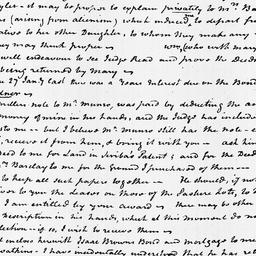 tyler - it may be proper to explain privately to Mrs. Ba
ne (arising from alienism) which induced to depart fr
atives to her other Daughter, to whom they make any
ey may think proper - wm (who with many
well endeavour to see Judge Read and prove the Deeds
being returned by Mary -
27 Jany last there was a Years Interest due on the Bond
dner -
Millers note to Mr. Munro, was paid by deducting the am
mony of mine in his hands, and the Judge has include
to me - but I believe Mr. Munro still has the note -
, receive it from him, & bring it with you - ask him
eed to me for Land in Scriba's Patent; and for the Deed
Barclay to me for the ground I purchased of them -
to keep all such papers together - He should, if not
ver to you the Leases on three of the Pashere lots, to
I am entitled by your award - there may be other
description in his hands, what at this moment do no
lection - if so, I wish to receive them -
I enclose herewith Isaac Browns Bond and mortgage to me
Watkins - I have incidentally understood that he has ret